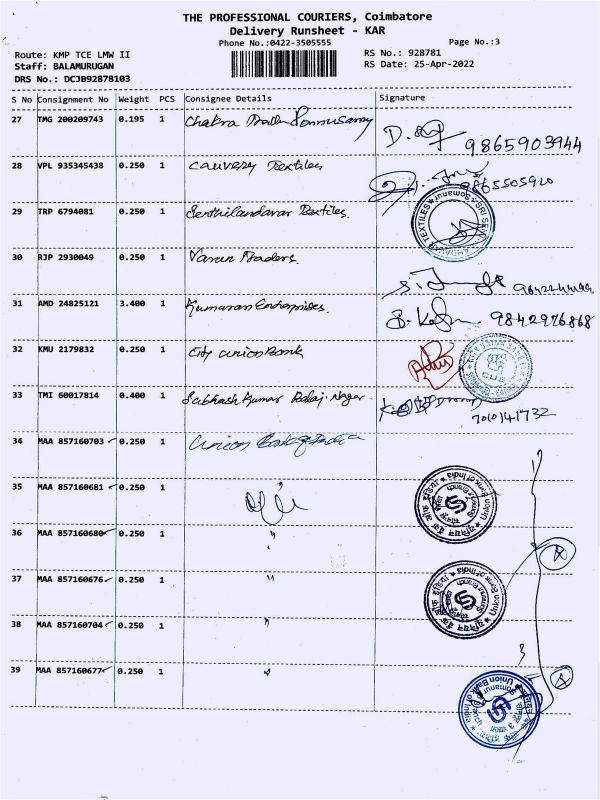 THE PROFESSIONAL COURIERS, Coimbatore
Delivery Runsheet - KAR
Phone No.:0422-3505555
Page No.:3
Route: KMP TCE LMW II
RS No.: 928781
Staff: BALAMURUGAN
RS Date: 25-Apr-2022
DRS No.: DCJB92878103
S No Consignment No Weight PCS Consignee Details Signature
27 TMG 200209743 0.195 1 Chakra
9865903944
28 VPL 935345438 0.250 1 Cauvery Textiles
9865505920
29 TRP 6794081 0.250 1 Senthilandavar Textiles.
30 RJP 2930049 0.250 1 Varun Traders.
31 AMD 24825121 3.400 1 Kumaran Enterprises.
9842976868
32 KMU 2179832 0.250 1 City union Bank
33 TMI 60017814 0.400 1 Subhash Kumar Balaji Nagar.
34 MAA 857160703 0.250 1 Union Bank of India
35 MAA 857160681 0.250 1
Union Bank of India
36 MAA 857160680 0.250 1 "
37 MAA 857160676 0.250 1 "
Union Bank of India
38 MAA 857160704 0.250 1 "
39 MAA 857160677 0.250 1 "
Union Bank of India